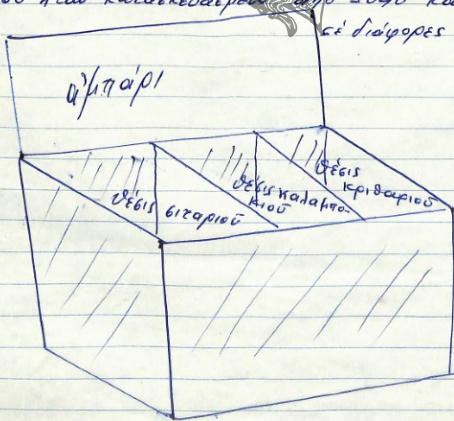 ἦταν κατασκευασμένο ἀπό ξύλο
σέ διάφορες
ἀμπάρι
θέσις σιταριοῦ
θέσις καλαμπο
κιοῦ
θέσις
κριθαριοῦ